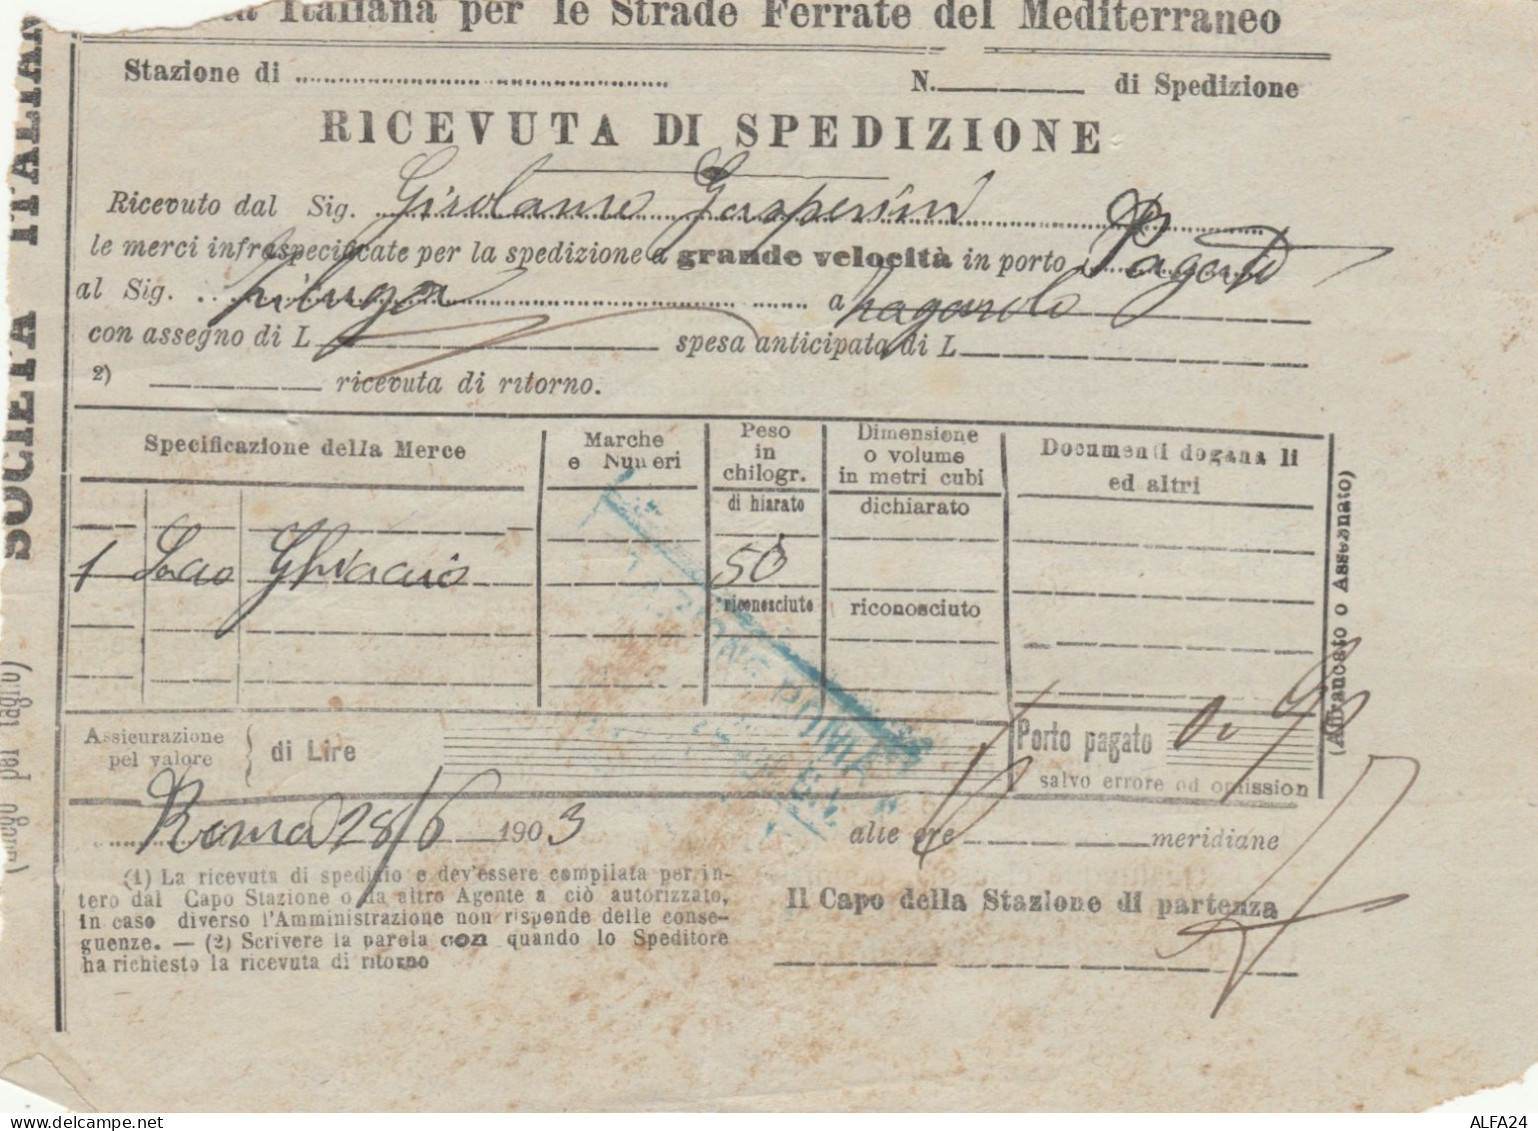 Italiana per le Strade Ferrate del Mediterraneo
SOCIETÀ ITALIANA
Stazione di
N. di Spedizione
RICEVUTA DI SPEDIZIONE
Ricevuto dal Sig. Girolamo Gasperini
le merci infraspecificate per la spedizione a grande velocità in porto Pagato
al Sig. a Zagarolo
con assegno di L spesa anticipata di L
2) ricevuta di ritorno.
Specificazione della Merce
Marche e Numeri
Peso in chilogr.
Dimensione o volume in metri cubi
Documenti doganali ed altri
dichiarato
dichiarato
1 Sacco Ghiaccio 50
riconosciuto
riconosciuto
(Affrancato o Assegnato)
Assicurazione pel valore di Lire
Porto pagato
salvo errore od omission
Roma 28/6 1903
alle ore meridiane
(1) La ricevuta di spedizio e dev'essere compilata per in-
tero dal Capo Stazione o da altro Agente a ciò autorizzato,
in caso diverso l'Amministrazione non risponde delle conse-
guenze. — (2) Scrivere la parola con quando lo Speditore
ha richiesto la ricevuta di ritorno
Il Capo della Stazione di partenza
ALFA24